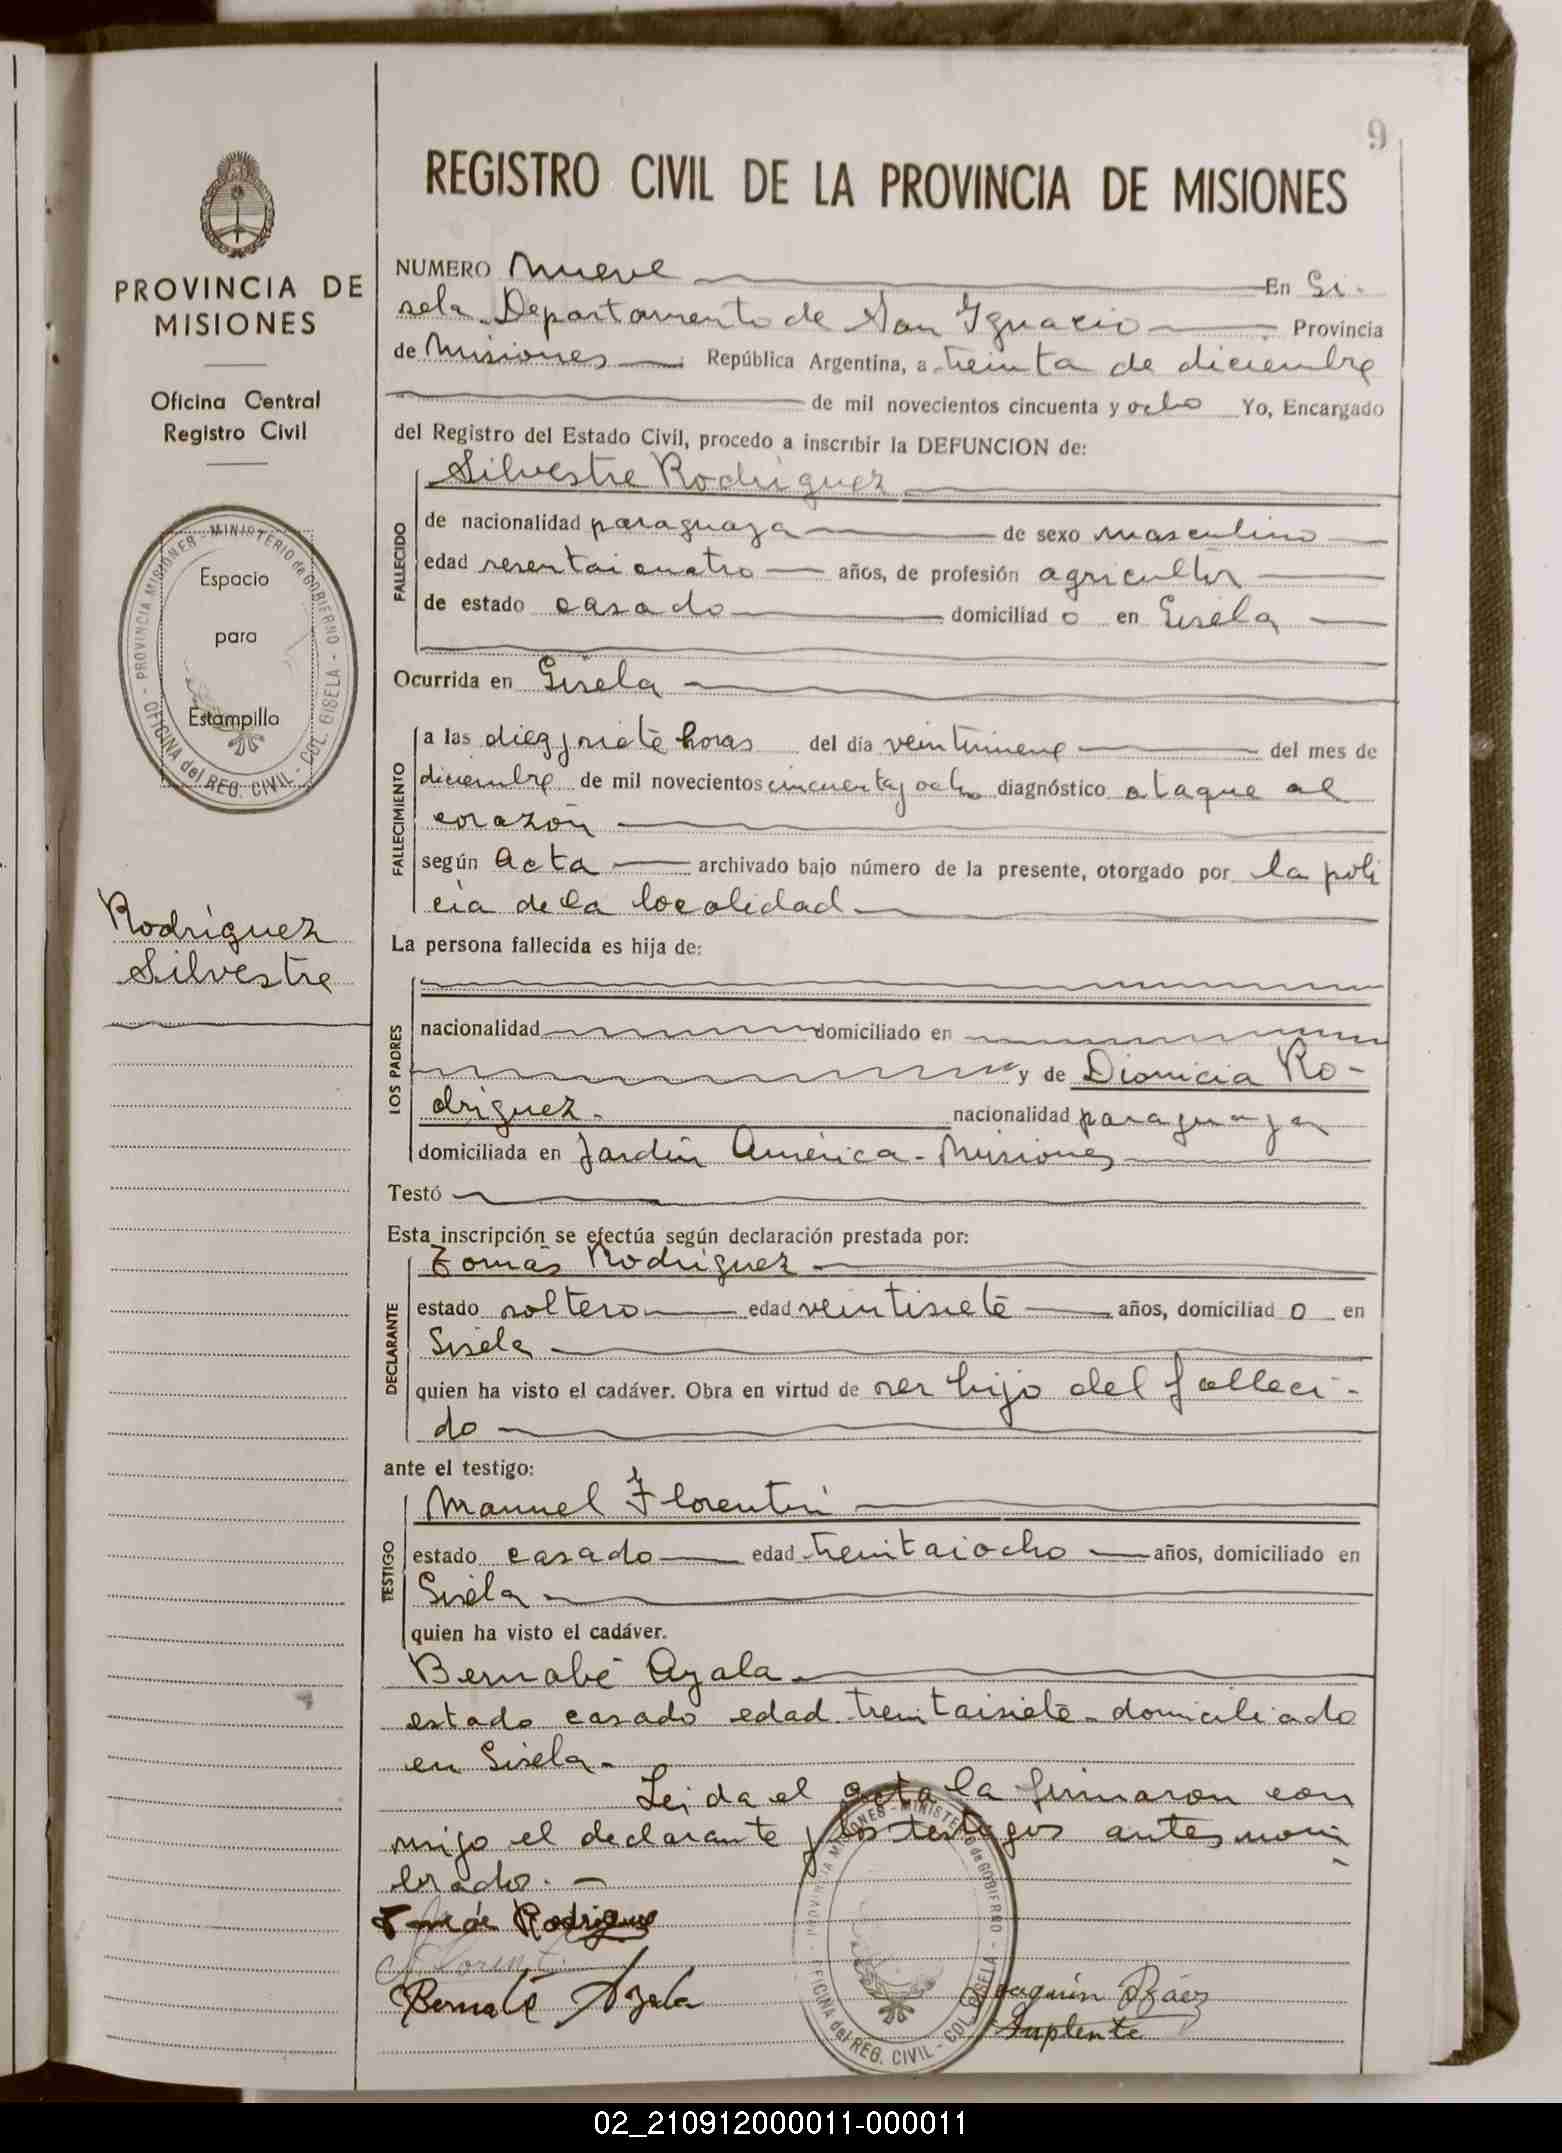 9
REGISTRO CIVIL DE LA PROVINCIA DE MISIONES
PROVINCIA DE
MISIONES
Oficina Central
Registro Civil
Espacio
para
Estampilla
PROVINCIA MISIONES - MINISTERIO de GOBIERNO - OFICINA del REG. CIVIL - COL. GISELA
Rodríguez
Silvestre
NUMERO Nueve En Gi-
sela. Departamento de San Ignacio Provincia
de Misiones República Argentina, a treinta de diciembre
de mil novecientos cincuenta y ocho Yo, Encargado
del Registro del Estado Civil, procedo a inscribir la DEFUNCION de:
Silvestre Rodriguez
FALLECIDO
de nacionalidad paraguaya de sexo masculino
edad sesentaicuatro años, de profesión agricultor
de estado casado domiciliad o en Gisela
Ocurrida en Gisela
FALLECIMIENTO
a las diez y siete horas del día veintinueve del mes de
diciembre de mil novecientos cincuenta y ocho diagnóstico ataque al
corazón
según Acta archivado bajo número de la presente, otorgado por la poli
cia de la localidad
La persona fallecida es hija de:
LOS PADRES
nacionalidad domiciliado en
y de Dionicia Ro-
driguez. nacionalidad paraguaya
domiciliada en Jardín América - Misiones
Testó
Esta inscripción se efectúa según declaración prestada por:
DECLARANTE
Tomás Rodriguez
estado soltero edad veintisiete años, domiciliad o en
Gisela
quien ha visto el cadáver. Obra en virtud de ser hijo del falleci-
do
ante el testigo:
TESTIGO
Manuel Florentin
estado casado edad treintaiocho años, domiciliado en
Gisela
quien ha visto el cadáver.
Bernabé Ayala
estado casado edad treintaisiete domiciliado
en Gisela.
Leida el acta la firmaron con
migo el declarante y los testigos antes nom
brados.
Tomás Rodriguez
Florentin
Bernabé Ayala
Joaquín Báez
Suplente
PROVINCIA MISIONES - MINISTERIO de GOBIERNO - OFICINA del REG. CIVIL - COL. GISELA
02_210912000011-000011